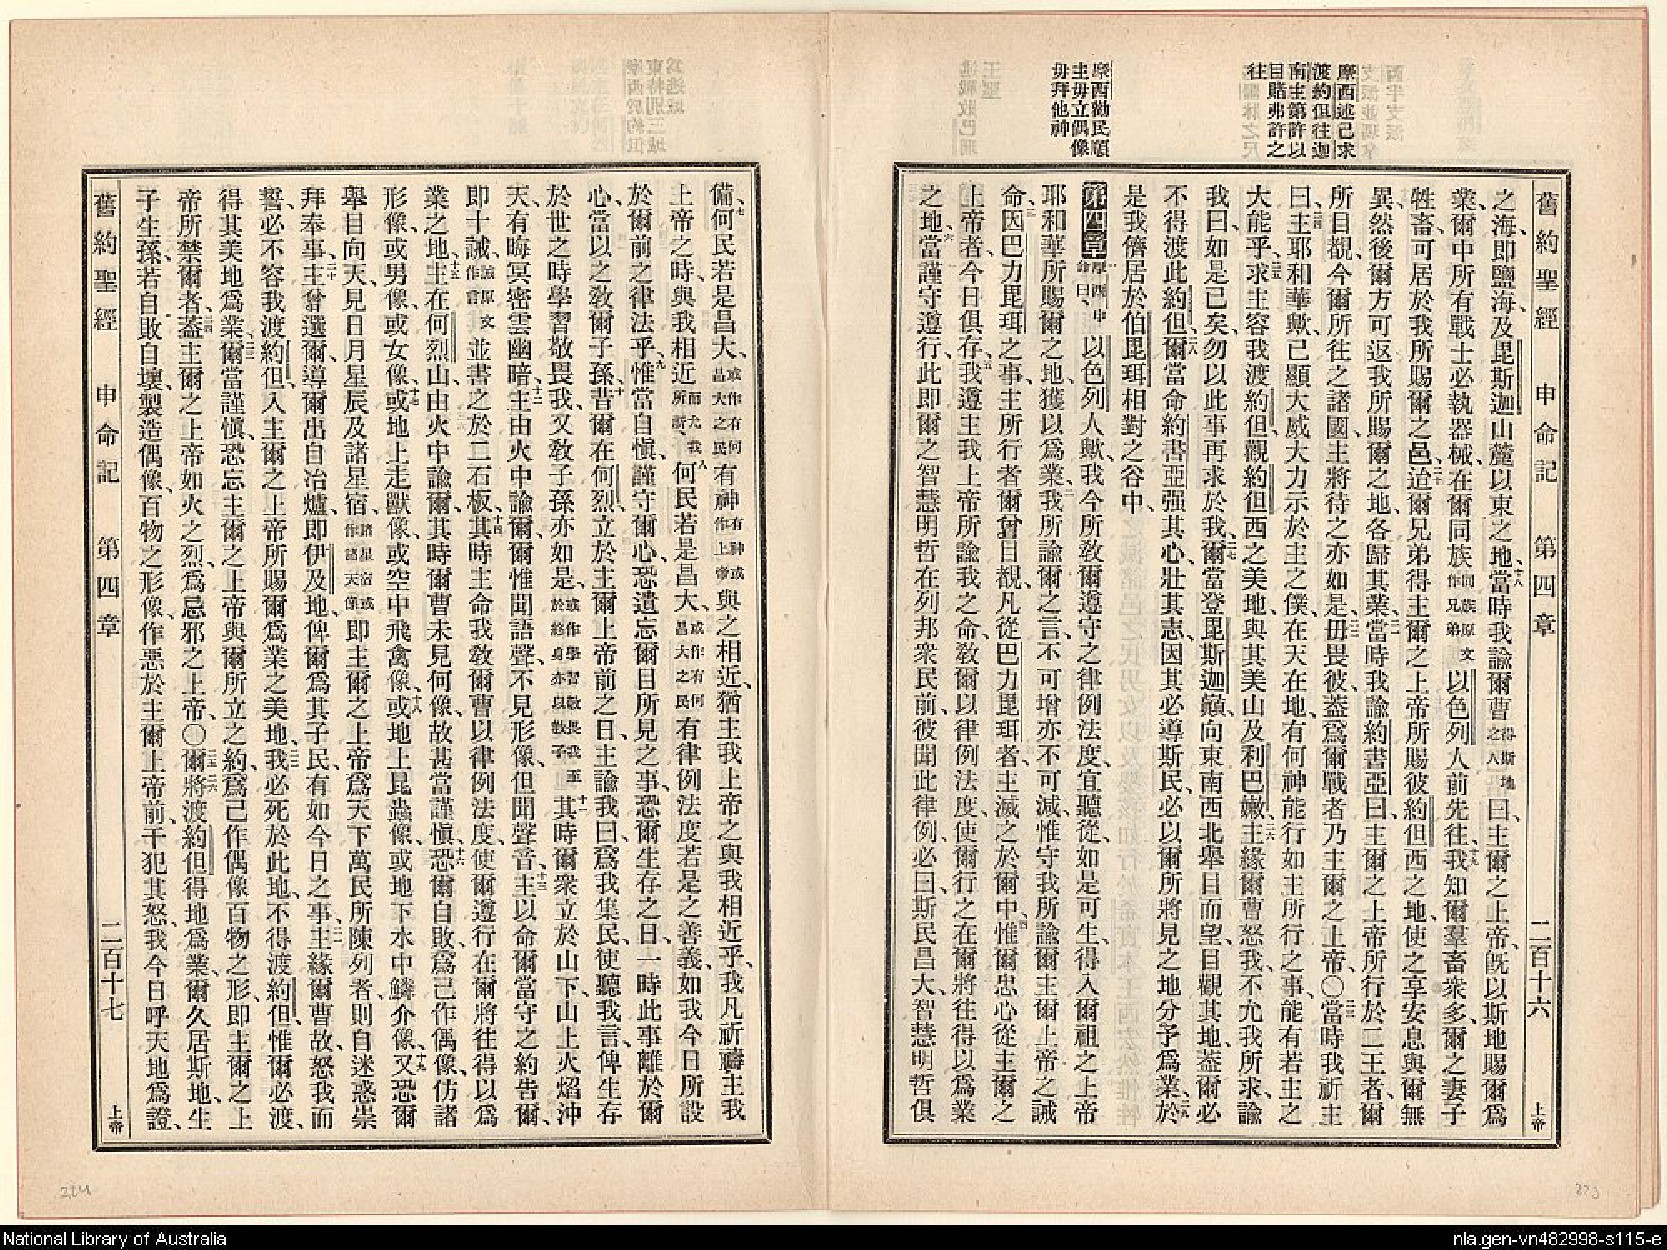 舊約聖經 申命記 第四章 二百十六 上帝
摩西述己求
渡約但往迦
南主第許以
目睹弗許之
往
摩西勸民順
主毋立偶像
毋拜他神
之海、即鹽海、及毘斯迦山麓以東之地、十八當時我諭爾曹得斯地之人曰、主爾之上帝、旣以斯地賜爾爲
業、爾中所有戰士、必執器械、在爾同族同族原文作兄弟以色列人前先往、十九我知爾羣畜衆多、爾之妻子
牲畜、可居於我所賜爾之邑、二十迨爾兄弟得主爾之上帝所賜彼約但西之地、使之享安息與爾無
異、然後爾方可返我所賜爾之地、各歸其業、二一當時我諭約書亞曰、主爾之上帝所行於二王者、爾
所目覩、今爾所往之諸國、主將待之亦如是、二二毋畏彼、蓋爲爾戰者、乃主爾之上帝、〇二三當時我祈主
曰、二四主耶和華歟、已顯大威大力、示於主之僕、在天在地、有何神能行如主所行之事、能有若主之
大能乎、二五求主容我渡約但、觀約但西之美地、與其美山及利巴嫩、二六主緣爾曹怒我、不允我所求、諭
我曰、如是已矣、勿以此事再求於我、二七爾當登毘斯迦巔、向東南西北舉目而望、目觀其地、蓋爾必
不得渡此約但、二八爾當命約書亞、强其心、壯其志、因其必導斯民、必以爾所將見之地、分予爲業、二九於
是我儕居於伯毘珥相對之谷中、
第四章 一摩西申命曰、以色列人歟、我今所敎爾遵守之律例法度、宜聽從、如是可生、得入爾祖之上帝
耶和華所賜爾之地、獲以爲業、二我所諭爾之言、不可增、亦不可減、惟守我所諭爾主爾上帝之誡
命、三因巴力毘珥之事、主所行者、爾曾目覩、凡從巴力毘珥者、主滅之於爾中、四惟爾忠心從主爾之
上帝者、今日俱存、五我遵主我上帝所諭我之命、敎爾以律例法度、使爾行之在爾將往得以爲業
之地、六當謹守遵行、此即爾之智慧明哲、在列邦衆民前、彼聞此律例、必曰、斯民昌大、智慧明哲俱
備、七何民若是昌大、或作有何昌大之民有神有神或作上帝與之相近、猶主我上帝之與我相近乎、我凡祈禱主我
上帝之時、與我相近而允我所祈、八何民若是昌大、或作有何昌大之民有律例法度、若是之善義、如我今日所設
於爾前之律法乎、九惟當自愼、謹守爾心、恐遺忘爾目所見之事、恐爾生存之日、一時此事離於爾
心、當以之敎爾子孫、十昔爾在何烈、立於主爾上帝前之日、主諭我曰、爲我集民、使聽我言、俾生存
於世之時、學習敬畏我、又敎子孫亦如是、或作學習敬畏我至於終身亦以敎子十一其時爾衆立於山下、山上火焰沖
天、有晦冥密雲幽暗、十二主由火中諭爾、爾惟聞語聲、不見形像、但聞聲音、十三主以命爾當守之約告爾、
即十誡、誡原文作言並書之於二石板、十四其時主命我敎爾曹以律例法度、使爾遵行在爾將往得以爲
業之地、十五主在何烈山由火中諭爾、其時爾曹未見何像、故甚當謹愼、十六恐爾自敗、爲己作偶像、仿諸
形像、或男像、或女像、十七或地上走獸像、或空中飛禽像、十八或地上昆蟲像、或地下水中鱗介像、十九又恐爾
舉目向天、見日月星辰、及諸星宿、諸星宿或作諸天像即主爾之上帝爲天下萬民所陳列者、則自迷惑、崇
拜奉事、二十主曾選爾、導爾出自冶爐、即伊及地、俾爾爲其子民、有如今日之事、二一主緣爾曹故怒我、而
誓必不容我渡約但、入主爾之上帝所賜爾爲業之美地、二二我必死於此地、不得渡約但、惟爾必渡、
得其美地爲業、二三爾當謹愼、恐忘主爾之上帝與爾所立之約、爲己作偶像百物之形、即主爾之上
帝所禁爾者、二四蓋主爾之上帝如火之烈、爲忌邪之上帝、〇二五爾將渡約但得地爲業、爾久居斯地、生
子生孫、若自敗自壞、製造偶像、百物之形像、作惡於主爾上帝前、干犯其怒、二六我今日呼天地爲證、
舊約聖經 申命記 第四章 二百十七 上帝
224
223
National Library of Australia
nla.gen-vn482998-s115-e